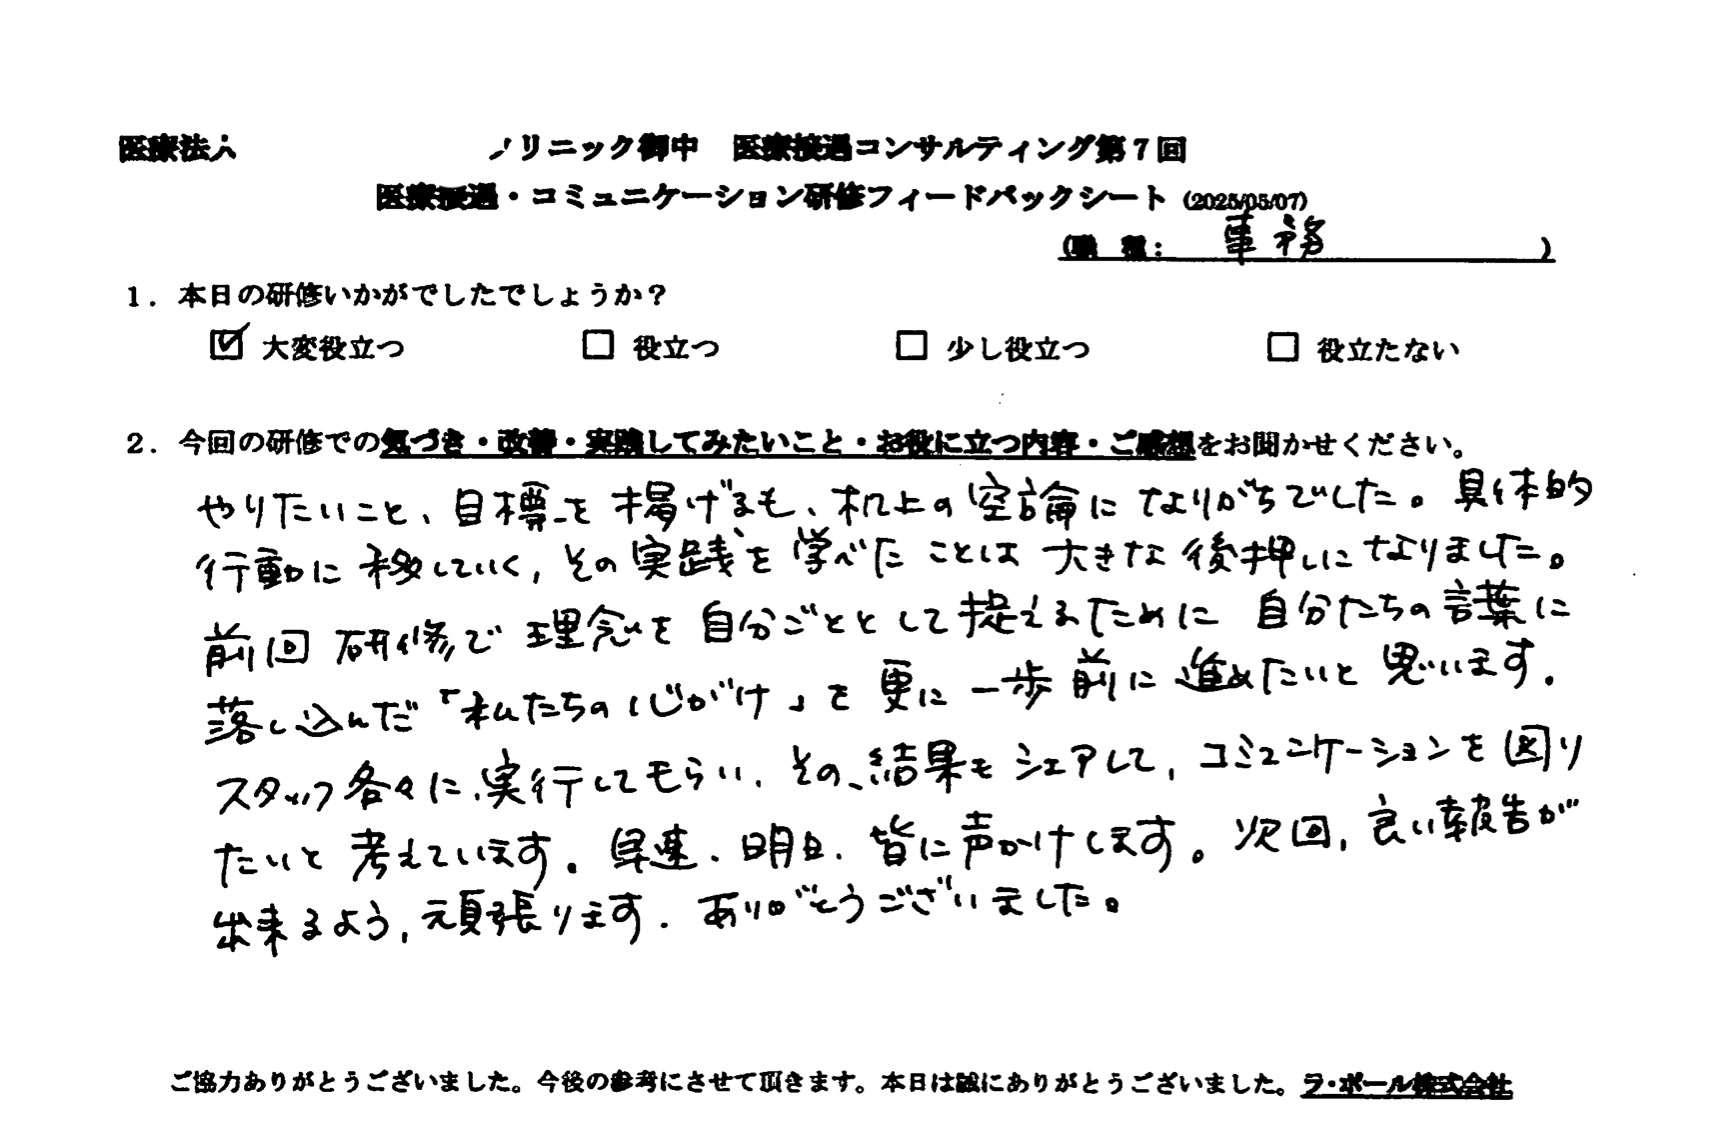 医療法人 リニック御中 医療接遇コンサルティング第7回
医療接遇・コミュニケーション研修フィードバックシート (2025/05/07)
(職 種: 事務 )
1. 本日の研修いかがでしたでしょうか?
☑ 大変役立つ □ 役立つ □ 少し役立つ □ 役立たない
2. 今回の研修での気づき・改善・実践してみたいこと・お役に立つ内容・ご感想をお聞かせください。
やりたいこと、目標を掲げるも、机上の空論になりがちでした。具体的
行動に移していく, その実践を学べたことは大きな後押しになりました。
前回研修で理念を自分ごととして捉えるために自分たちの言葉に
落し込んだ「私たちの心がけ」を更に一歩前に進めたいと思います.
スタッフ各々に、実行してもらい、その、結果をシェアして, コミュニケーションを図り
たいと考えています。早速、明日、皆に声かけします。次回, 良い報告が
出来るよう, 頑張ります. ありがとうございました。
ご協力ありがとうございました。今後の参考にさせて頂きます。本日は誠にありがとうございました。ラ・ポール株式会社